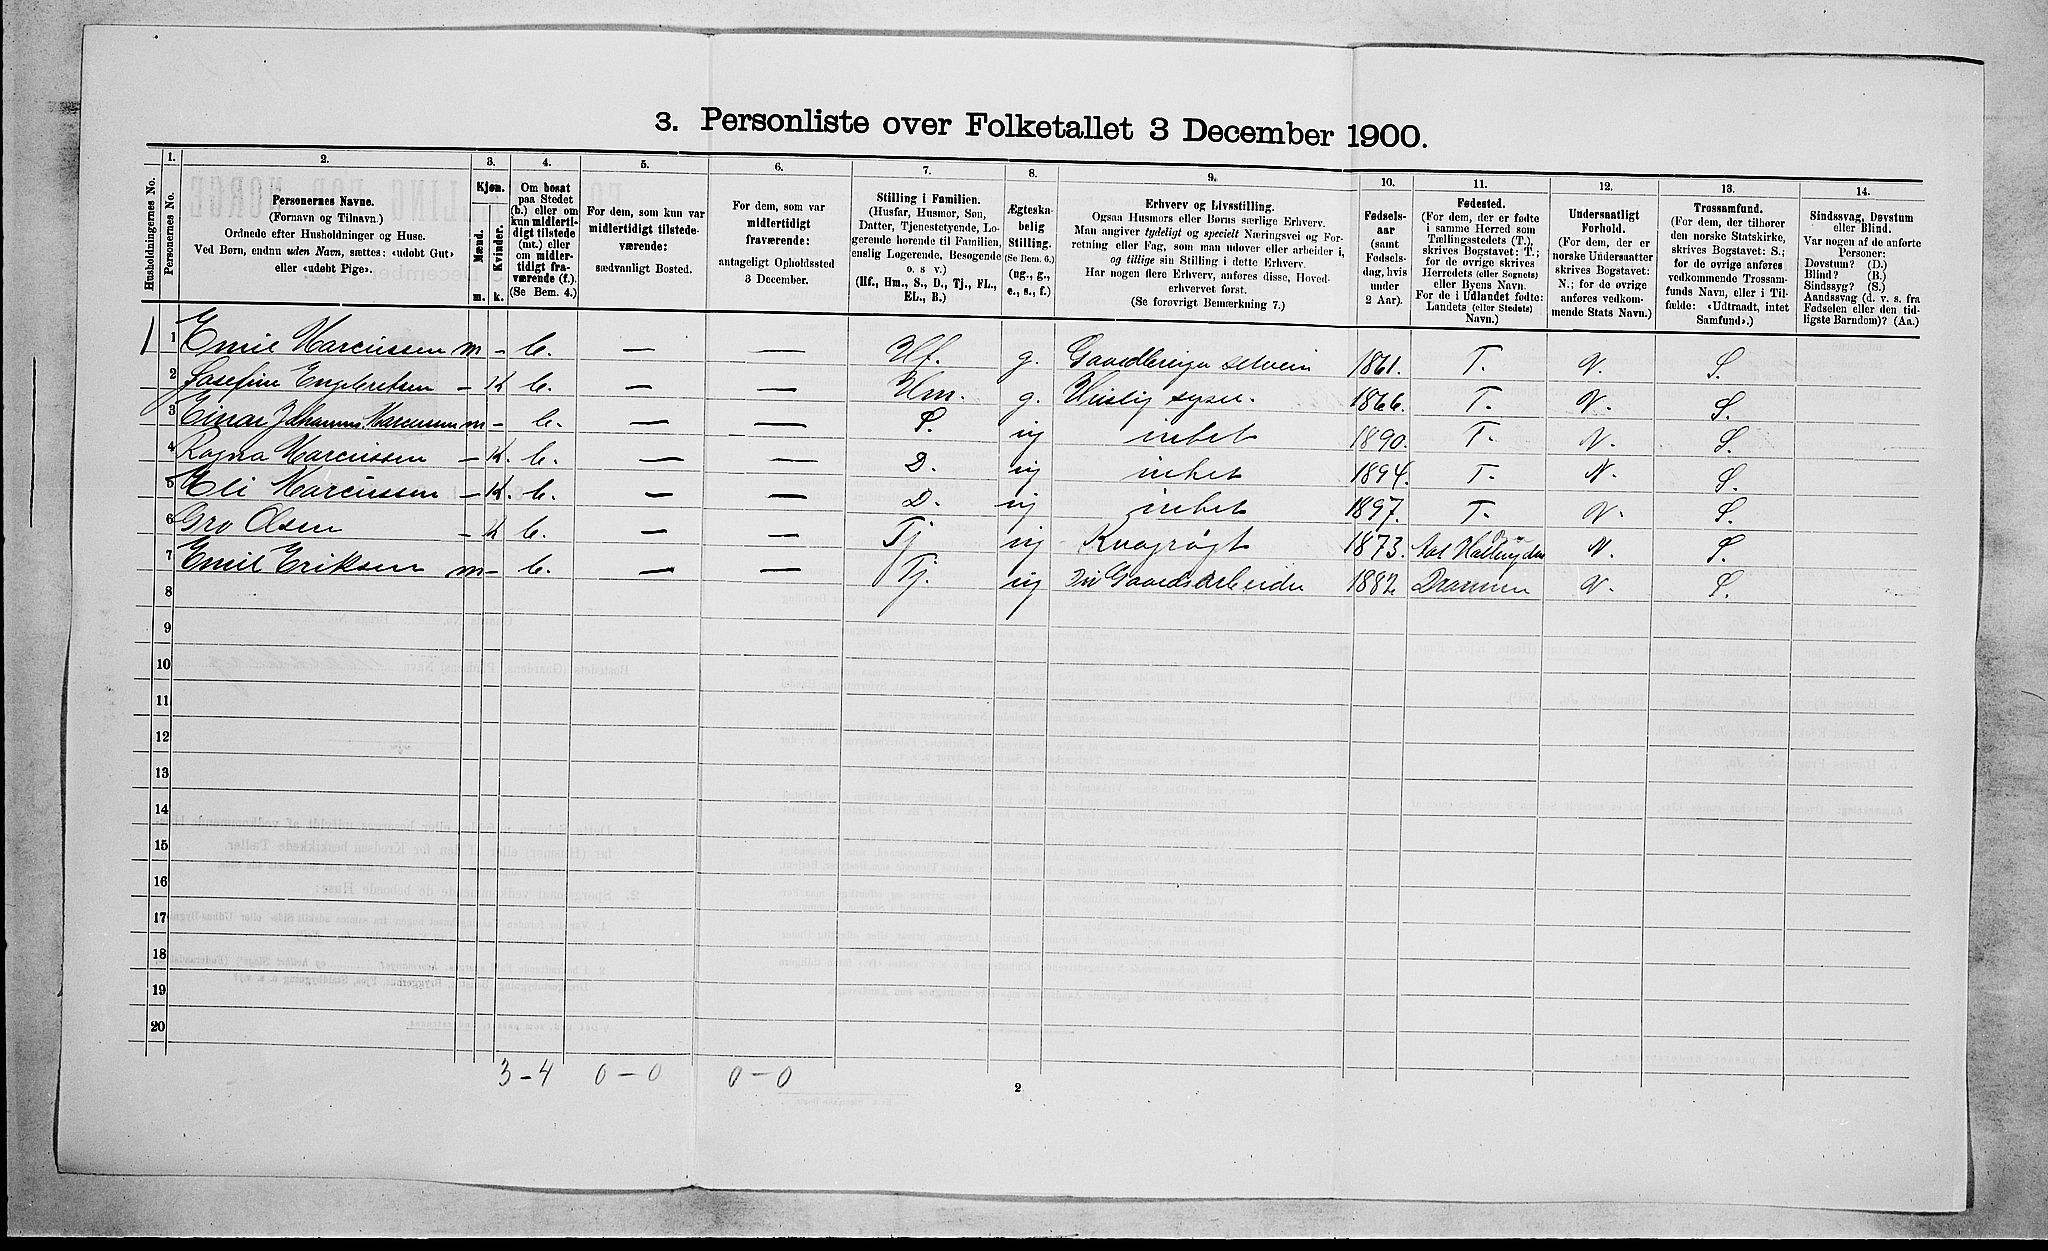 3. Personliste over Folketallet 3 December 1900.
Husholdningernes No.
1.
Personernes No.
2.
Personernes Navne.
(Fornavn og Tilnavn.)
Ordnede efter Husholdninger og Huse.
Ved Børn, endnu uden Navn, sættes: «udøbt Gut»
eller «udøbt Pige».
3.
Kjøn.
Mænd.
Kvinder.
m. k.
4.
Om bosat
paa Stedet
(b.) eller om
kun midlerti-
digt tilstede
(mt.) eller
om midler-
tidigt fra-
værende (f.).
(Se Bem. 4.)
5.
For dem, som kun var
midlertidigt tilstede-
værende:
sædvanligt Bosted.
6.
For dem, som var
midlertidigt
fraværende:
antageligt Opholdssted
3 December.
7.
Stilling i Familien.
(Husfar, Husmor, Søn,
Datter, Tjenestetyende, Lo-
gerende hørende til Familien,
enslig Logerende, Besøgende
o. s v.)
(Hf., Hm., S., D., Tj., FL.,
EL., B.)
8.
Ægteska-
belig
Stilling.
(Se Bem. 6.)
(ug., g.,
e., s., f.)
9.
Erhverv og Livsstilling.
Ogsaa Husmors eller Børns særlige Erhverv.
Man angiver tydeligt og specielt Næringsvei og For-
retning eller Fag, som man udøver eller arbeider i,
og tillige sin Stilling i dette Erhverv.
Har nogen flere Erhverv, anføres disse, Hoved-
erhvervet først.
(Se forøvrigt Bemærkning 7.)
10.
Fødsels-
aar
(samt
Fødsels-
dag, hvis
under
2 Aar).
11.
Fødested.
(For dem, der er fødte
i samme Herred som
Tællingsstedets (T.),
skrives Bogstavet: T.;
for de øvrige skrives
Herredets (eller Sognets)
eller Byens Navn.
For de i Udlandet fødte:
Landets (eller Stedets)
Navn.)
12.
Undersaatligt
Forhold.
(For dem, der er
norske Undersaatter
skrives Bogstavet:
N.; for de øvrige
anføres vedkom-
mende Stats Navn.)
13.
Trossamfund.
(For dem, der tilhører
den norske Statskirke,
skrives Bogstavet: S.;
for de øvrige anføres
vedkommende Trossam-
funds Navn, eller i Til-
fælde: «Udtraadt, intet
Samfund».)
14.
Sindssvag, Døvstum
eller Blind.
Var nogen af de anførte
Personer:
Døvstum? (D.)
Blind? (B.)
Sindssyg? (S.)
Aandssvag (d. v. s. fra
Fødselen eller den tid-
ligste Barndom)? (Aa.)
1 1 Emil Marcussen m - b. — — Hf. g. Gaardbruger selveier 1861. T. N. S.
2 Josefine Engebretsen - K b. — — Hm. g. Huslig syssel. 1866. T. N. S.
3 Einar Johannes Marcussen m - b. — — S. ug intet 1890. T. N. S.
4 Ragna Marcussen - K. b. — — D. ug intet 1894. T. N. S.
5 Eli Marcussen - K. b. — — D. ug intet 1897. T. N. S.
6 Gro Olsen - K b. — — Tj ug Kvægrøgt 1873. Aal Hallingdal N. S.
7 Emil Eriksen m - b. — — Tj. ug Gaardsarbeider 1882 Drammen N. S.
8
9
10
11
12
13
14
15
16
17
18
19
20
3 - 4 0 - 0 0 - 0
2